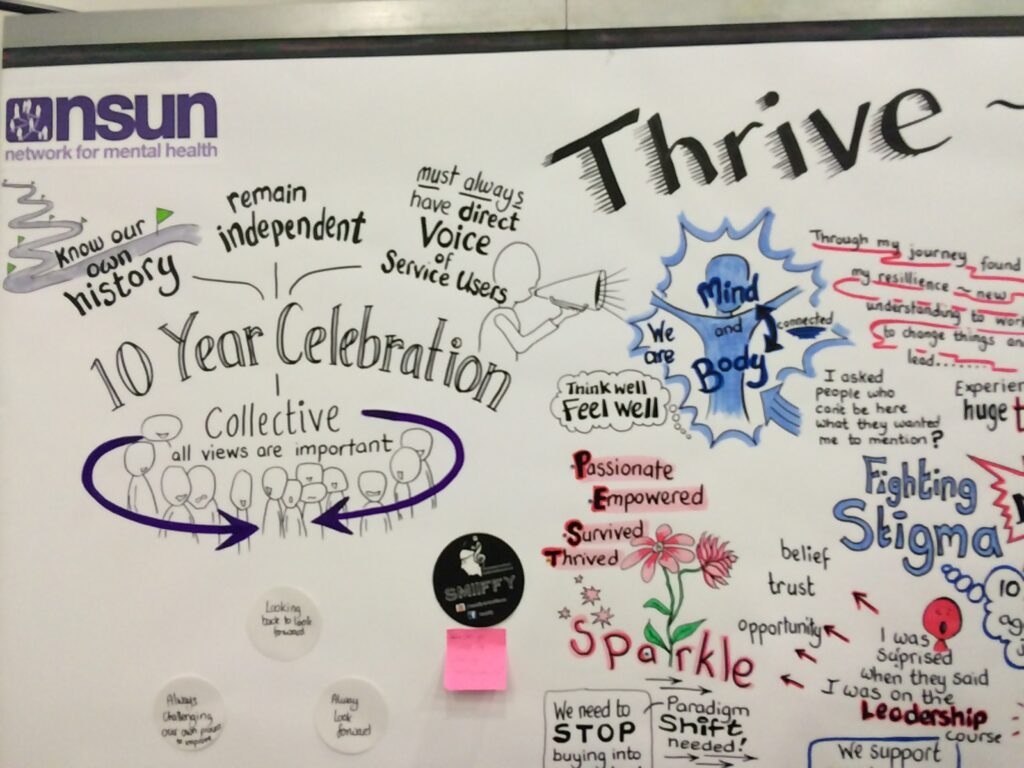 nsun
network for mental health
Thrive ~
Know our
own
history
remain
independent
must always
have direct
Voice
of
Service Users
10 Year Celebration
Collective
all views are important
We
are
Mind
and
Body
connected
Think well
Feel well
Through my journey found
my resillience ~ new
understanding to
to change things
lead........
I asked
people who
can't be here
what they wanted
me to mention?
huge
Passionate
Empowered
Survived
Thrived
Sparkle
Fighting
Stigma
10
belief
trust
opportunity
I was
Suprised
when they said
I was on the
Leadership
course
SMIIFFY
Looking
back to look
forward
Always
Challenging
our own
to improve
Always
Look
forward
We need to
STOP
buying into
Paradigm
Shift
needed!
We support